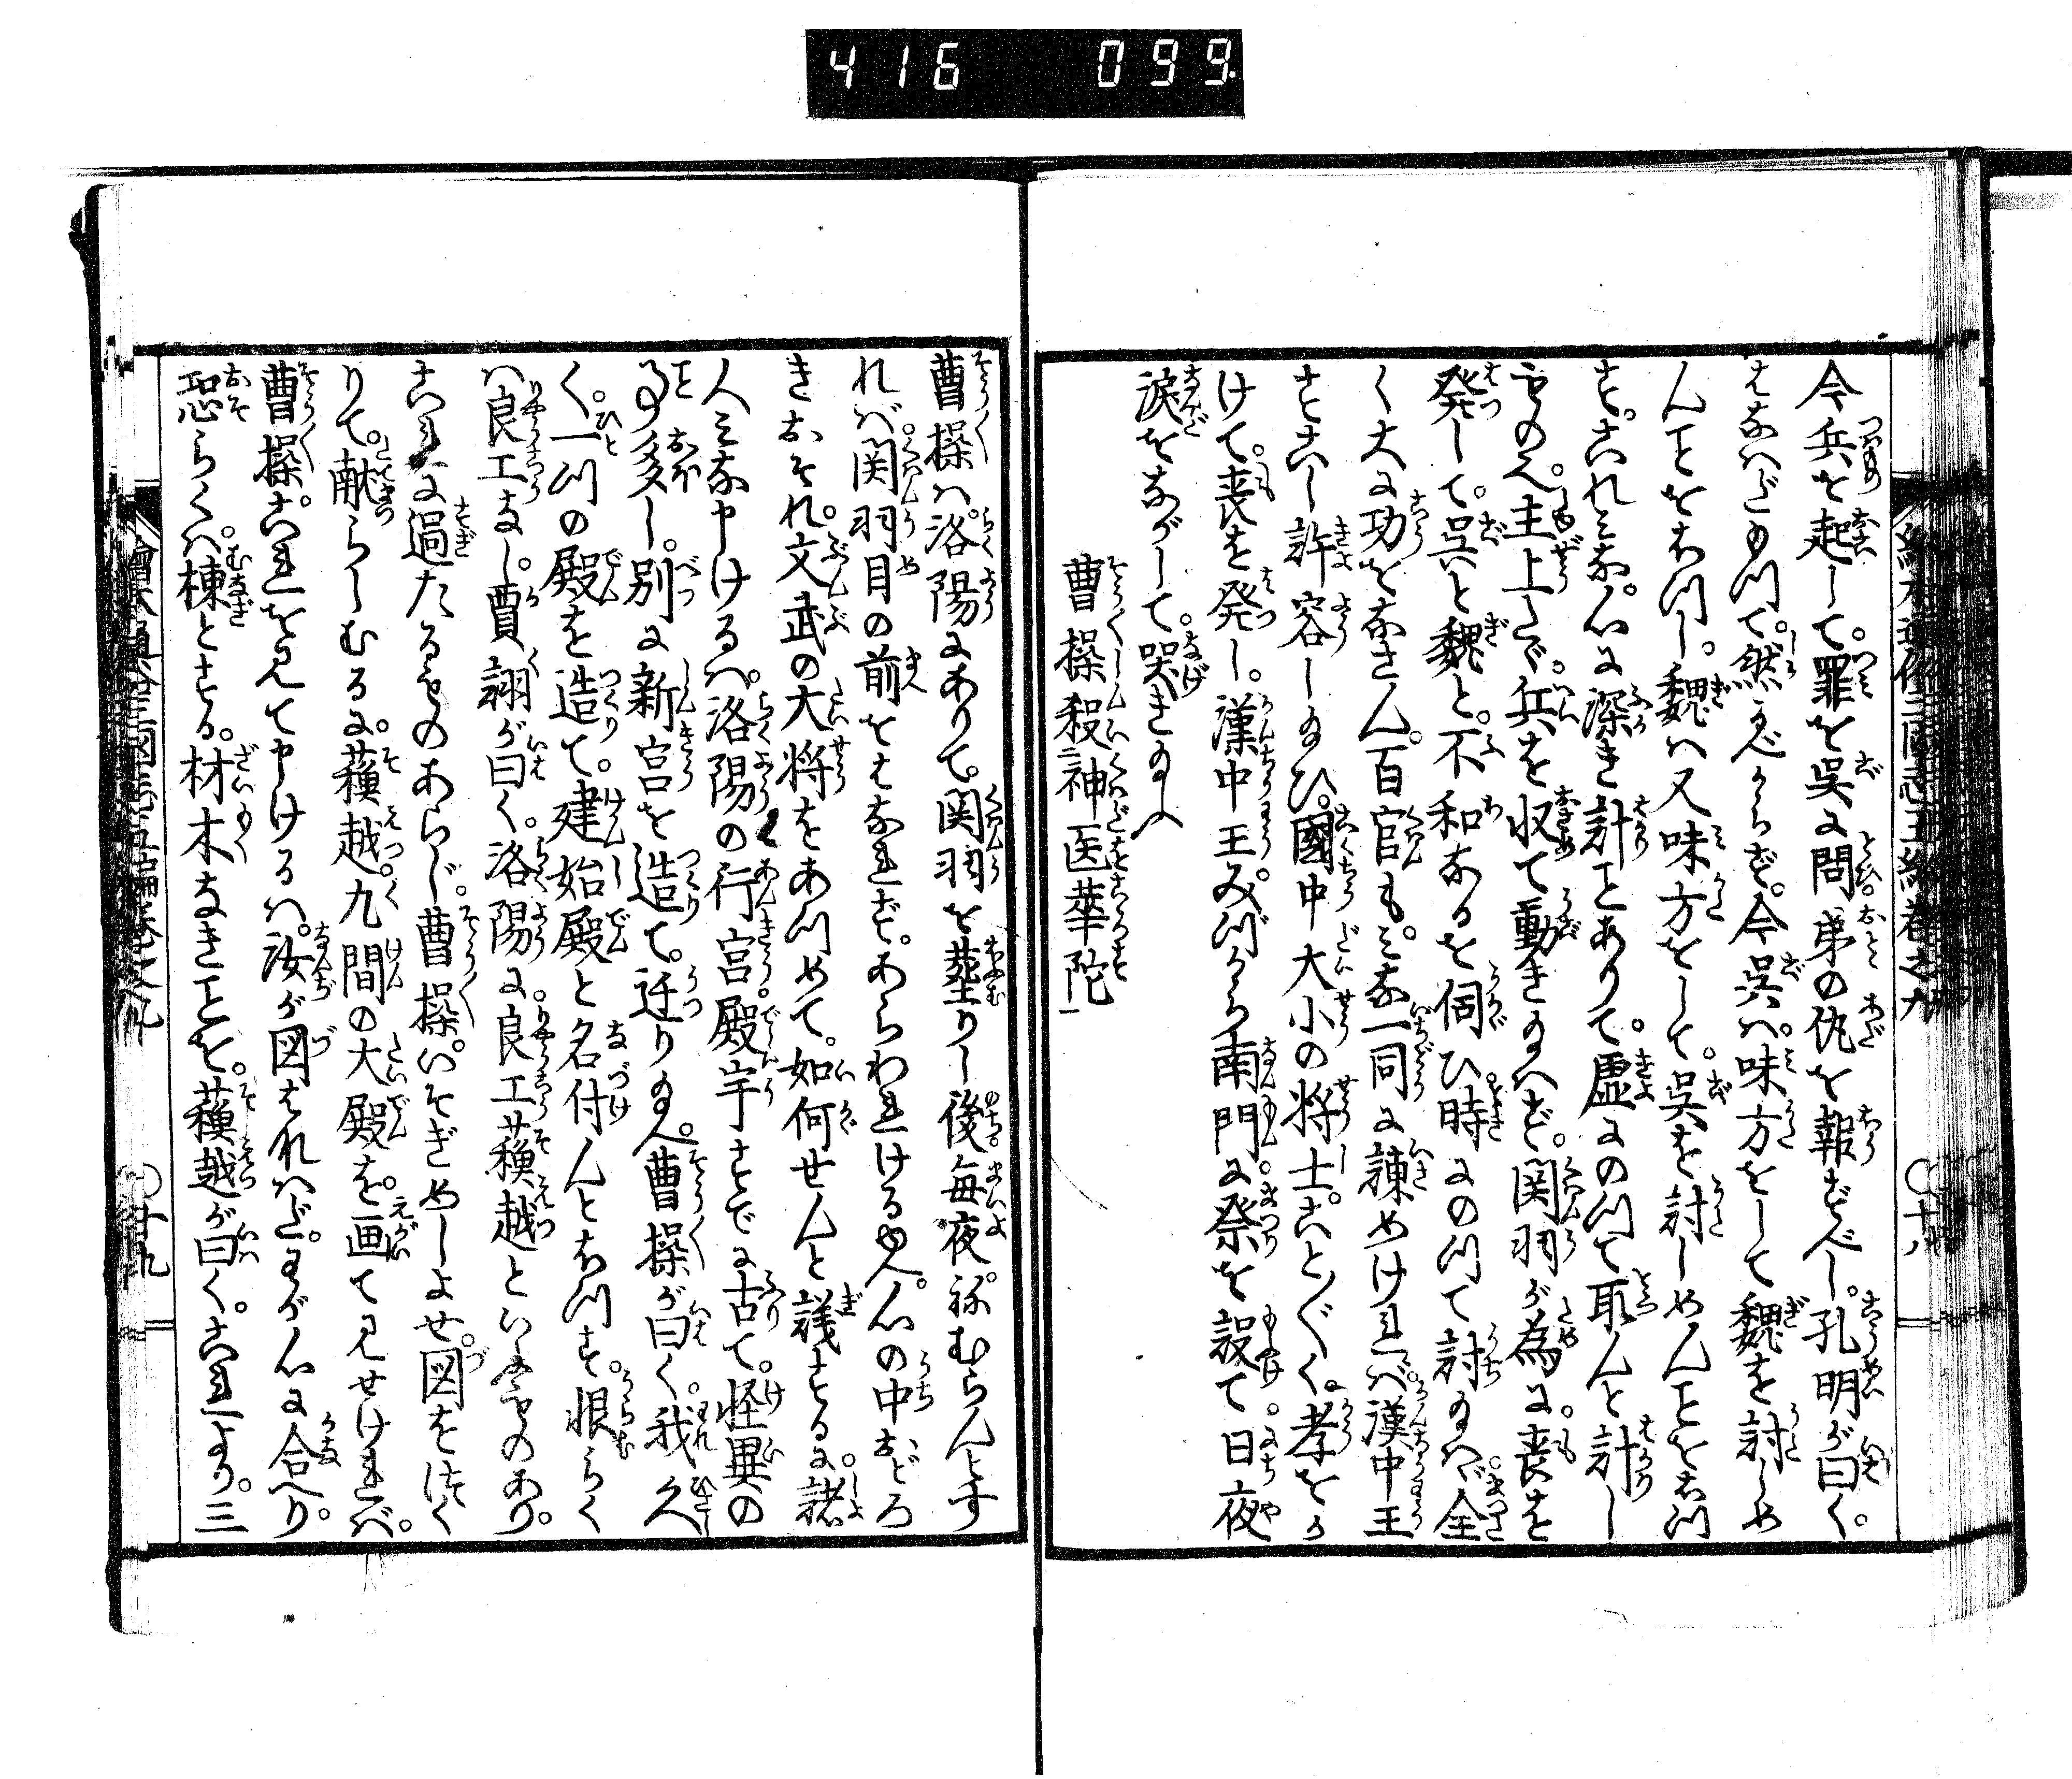 416 099
今兵を起して。罪を呉に問。弟の仇を報ずべし。孔明が曰く。
さなへども。然べからず。今呉は。味方をして魏を討しめ
んことをおもひ。魏は又味方をして。呉を討しめんことをおもふ
す。これみな。心に深き計ことありて。虚にのつて取んと計し
ものへ。主上たゞ。兵を収て動き給へず。関羽が為に。喪を
発して。呉と魏と。不和なるを伺ひ。時にのつて討給はゞ。全
く大に功をなさん。百官も。みな一同に諫めければ。漢中王
さとし許容し給ひ。國中大小の将士。こと〴〵く。孝をか
けて。喪を発し。漢中王。みづから南門に。祭を設て。日夜
涙をながして。哭き給ふ
曹操殺神医華陀
曹操は。洛陽にありて。関羽を葬りし後。毎夜。ねむらんとす
れば。関羽目の前をはなれず。あらわれける由へ。心の中おどろ
きおそれ。文武の大将をあつめて。如何せんと議するに。諸
人みな申けるは。洛陽の行宮。殿宇すでに古て。怪異の
こと多し。別に新宮を造て。迁り給へ。曹操が曰く。我久し
く。一つの殿を造て。建始殿と名付んとおもふ。恨らく
は良工なし。賈詡が曰く。洛陽に。良工蘓越といふものあり。
これに過たるものあらじ。曹操。いそぎめしよせ。図をはく
りて。献らしむるに。蘓越。九間の大殿を。画て見せければ。
曹操。これを見て申けるは。汝が図これは。わが心に合へり。
恐らくは。棟とする。材木なきことを。蘓越が曰く。これより。三
繪本通俗三國志五編卷之九
〇十九